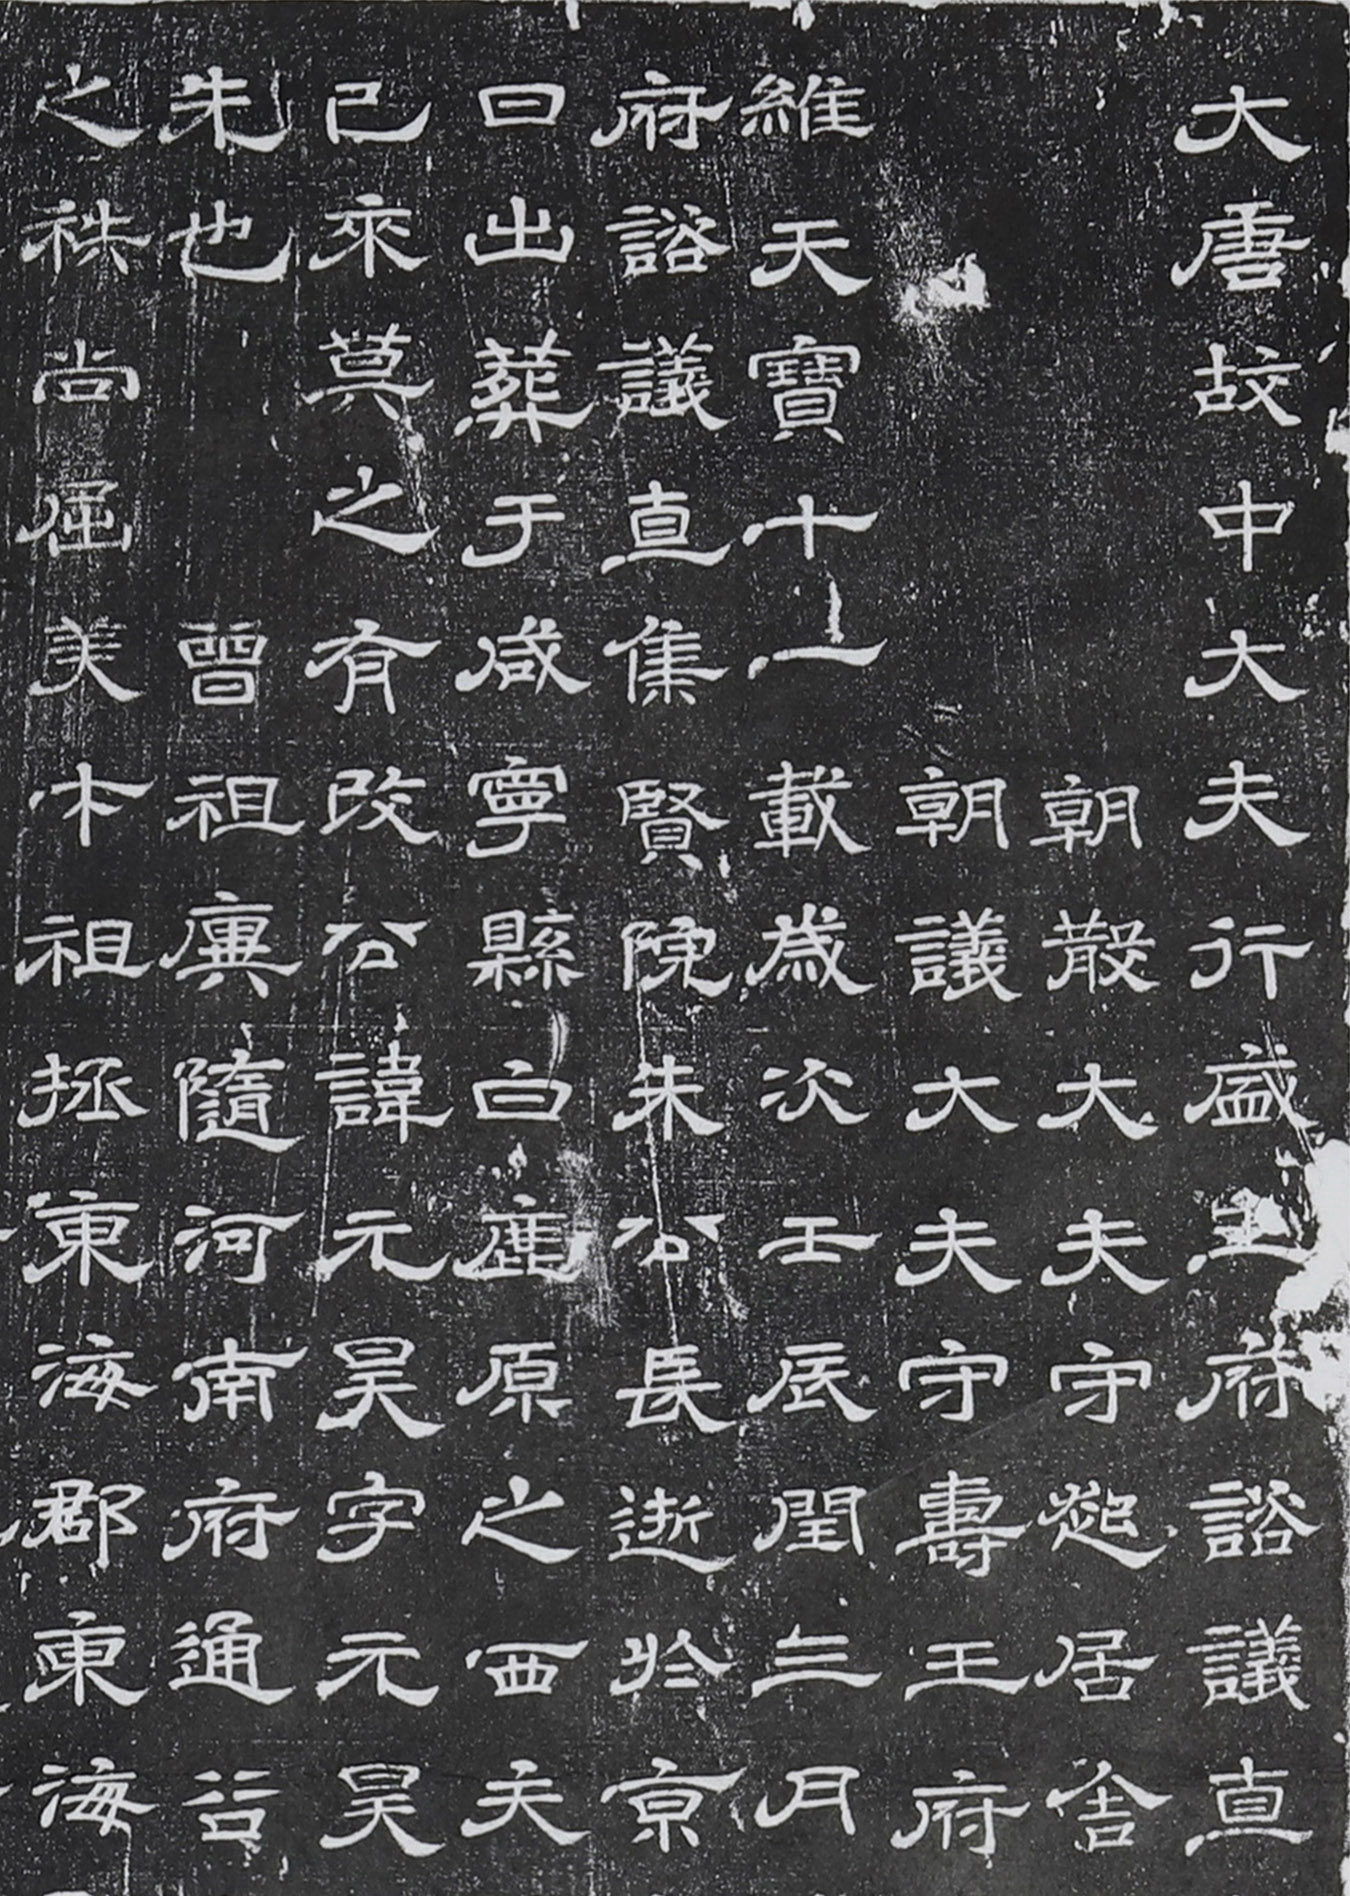 大唐故中大夫行盛王府諮議直
朝散大夫守起居舍
朝議大夫守壽王府
維天寶十一載歲次壬辰閏三月
府諮議直集賢院朱公長逝於京
日出葬于咸寧縣白鹿原之西天
已來莫之有改公諱元昊字元昊
朱也 曾祖廙隨河南府通谷
之祑尚屈美才祖拯東海郡東海